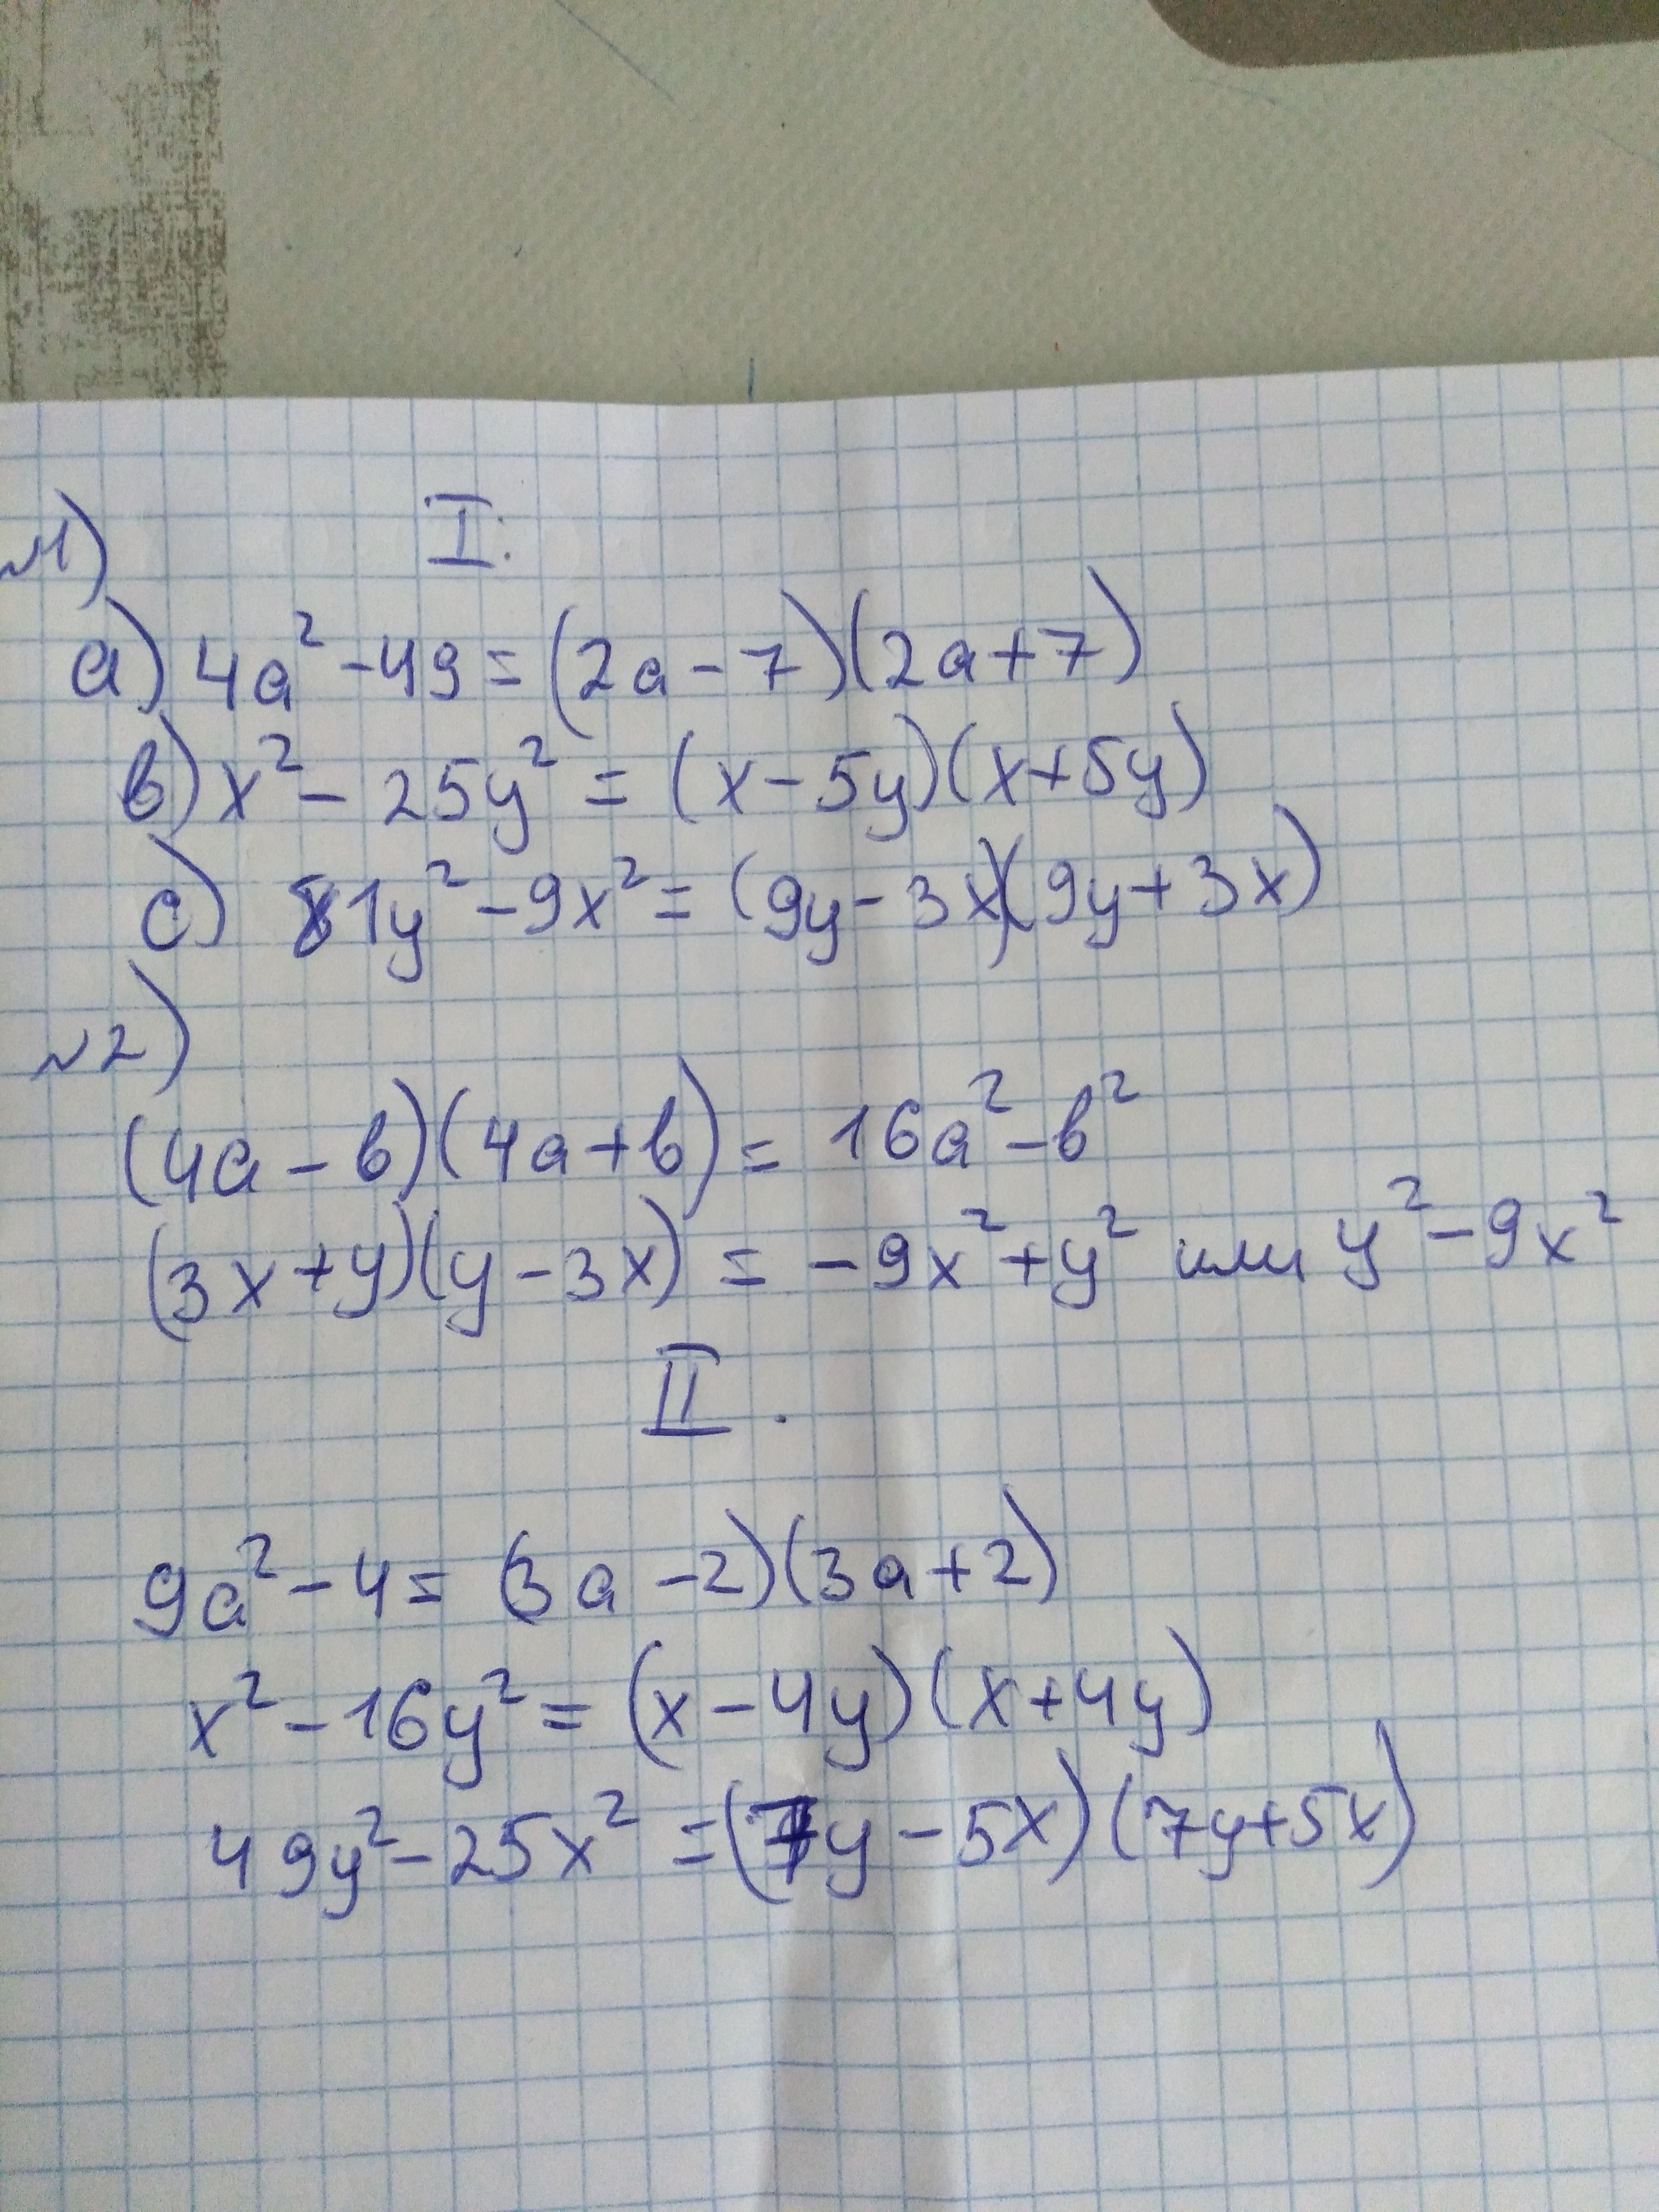 I.
№1)
a) 4a² - 49 = (2a - 7)(2a + 7)
b) x² - 25y² = (x - 5y)(x + 5y)
c) 81y² - 9x² = (9y - 3x)(9y + 3x)
№2)
(4a - b)(4a + b) = 16a² - b²
(3x + y)(y - 3x) = -9x² + y² или y² - 9x²
II.
9a² - 4 = (3a - 2)(3a + 2)
x² - 16y² = (x - 4y)(x + 4y)
49y² - 25x² = (7y - 5x)(7y + 5x)